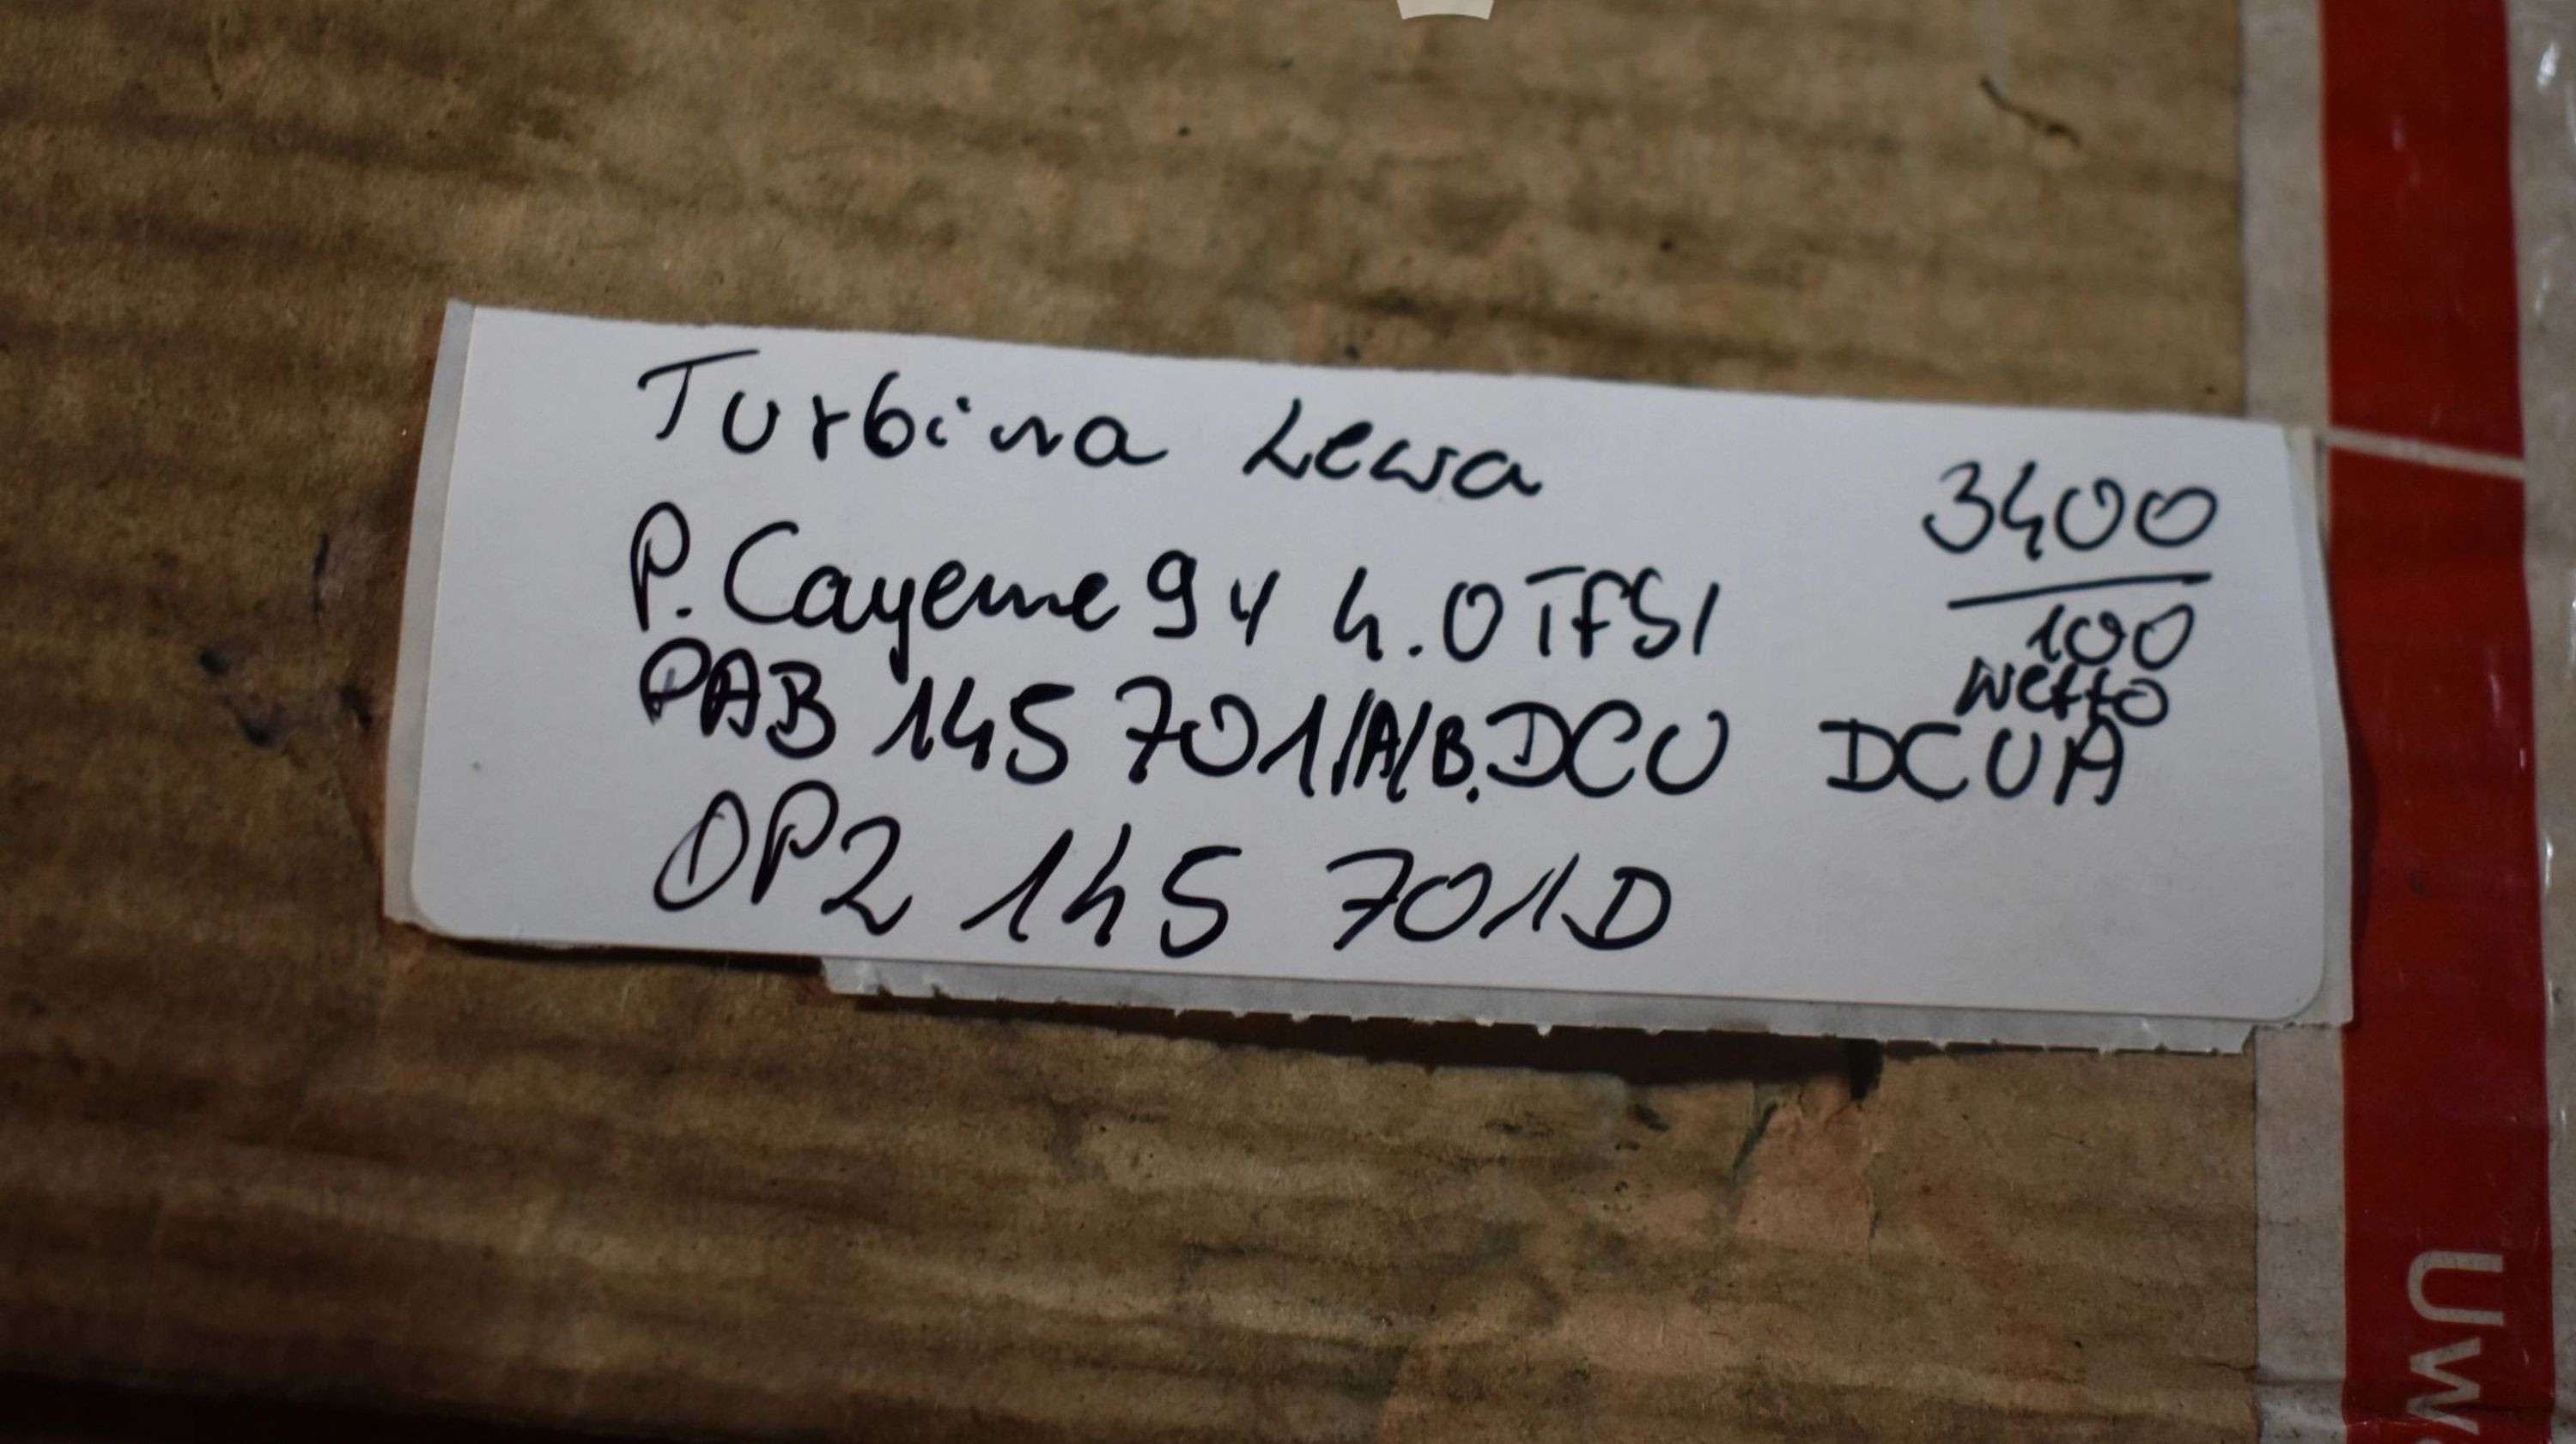 Turbina Lewa
P. Cayenne 9Y 4.0 TFSI
3400
100
netto
PAB 145 701/A/B. DCU DCUA
OP2 145 701D
UW